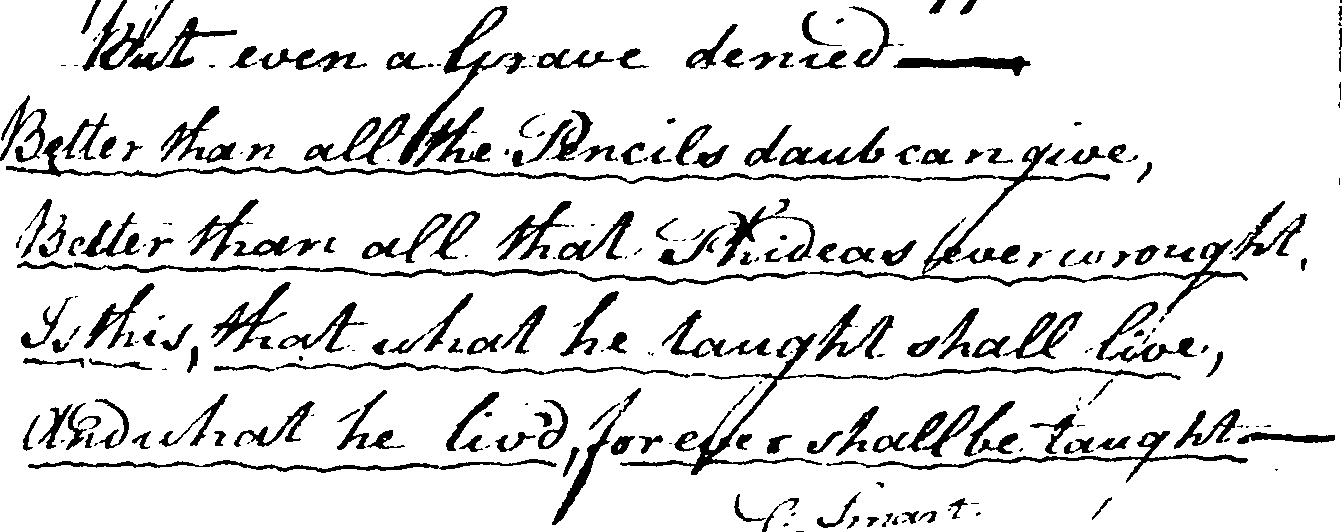 But even a Grave denied —
Better than all the Pencils daub can give,
Better than all that Phideas ever wrought,
Is this, that what he taught shall live,
And what he liv'd, for ever shall be taught —
C. Smart.